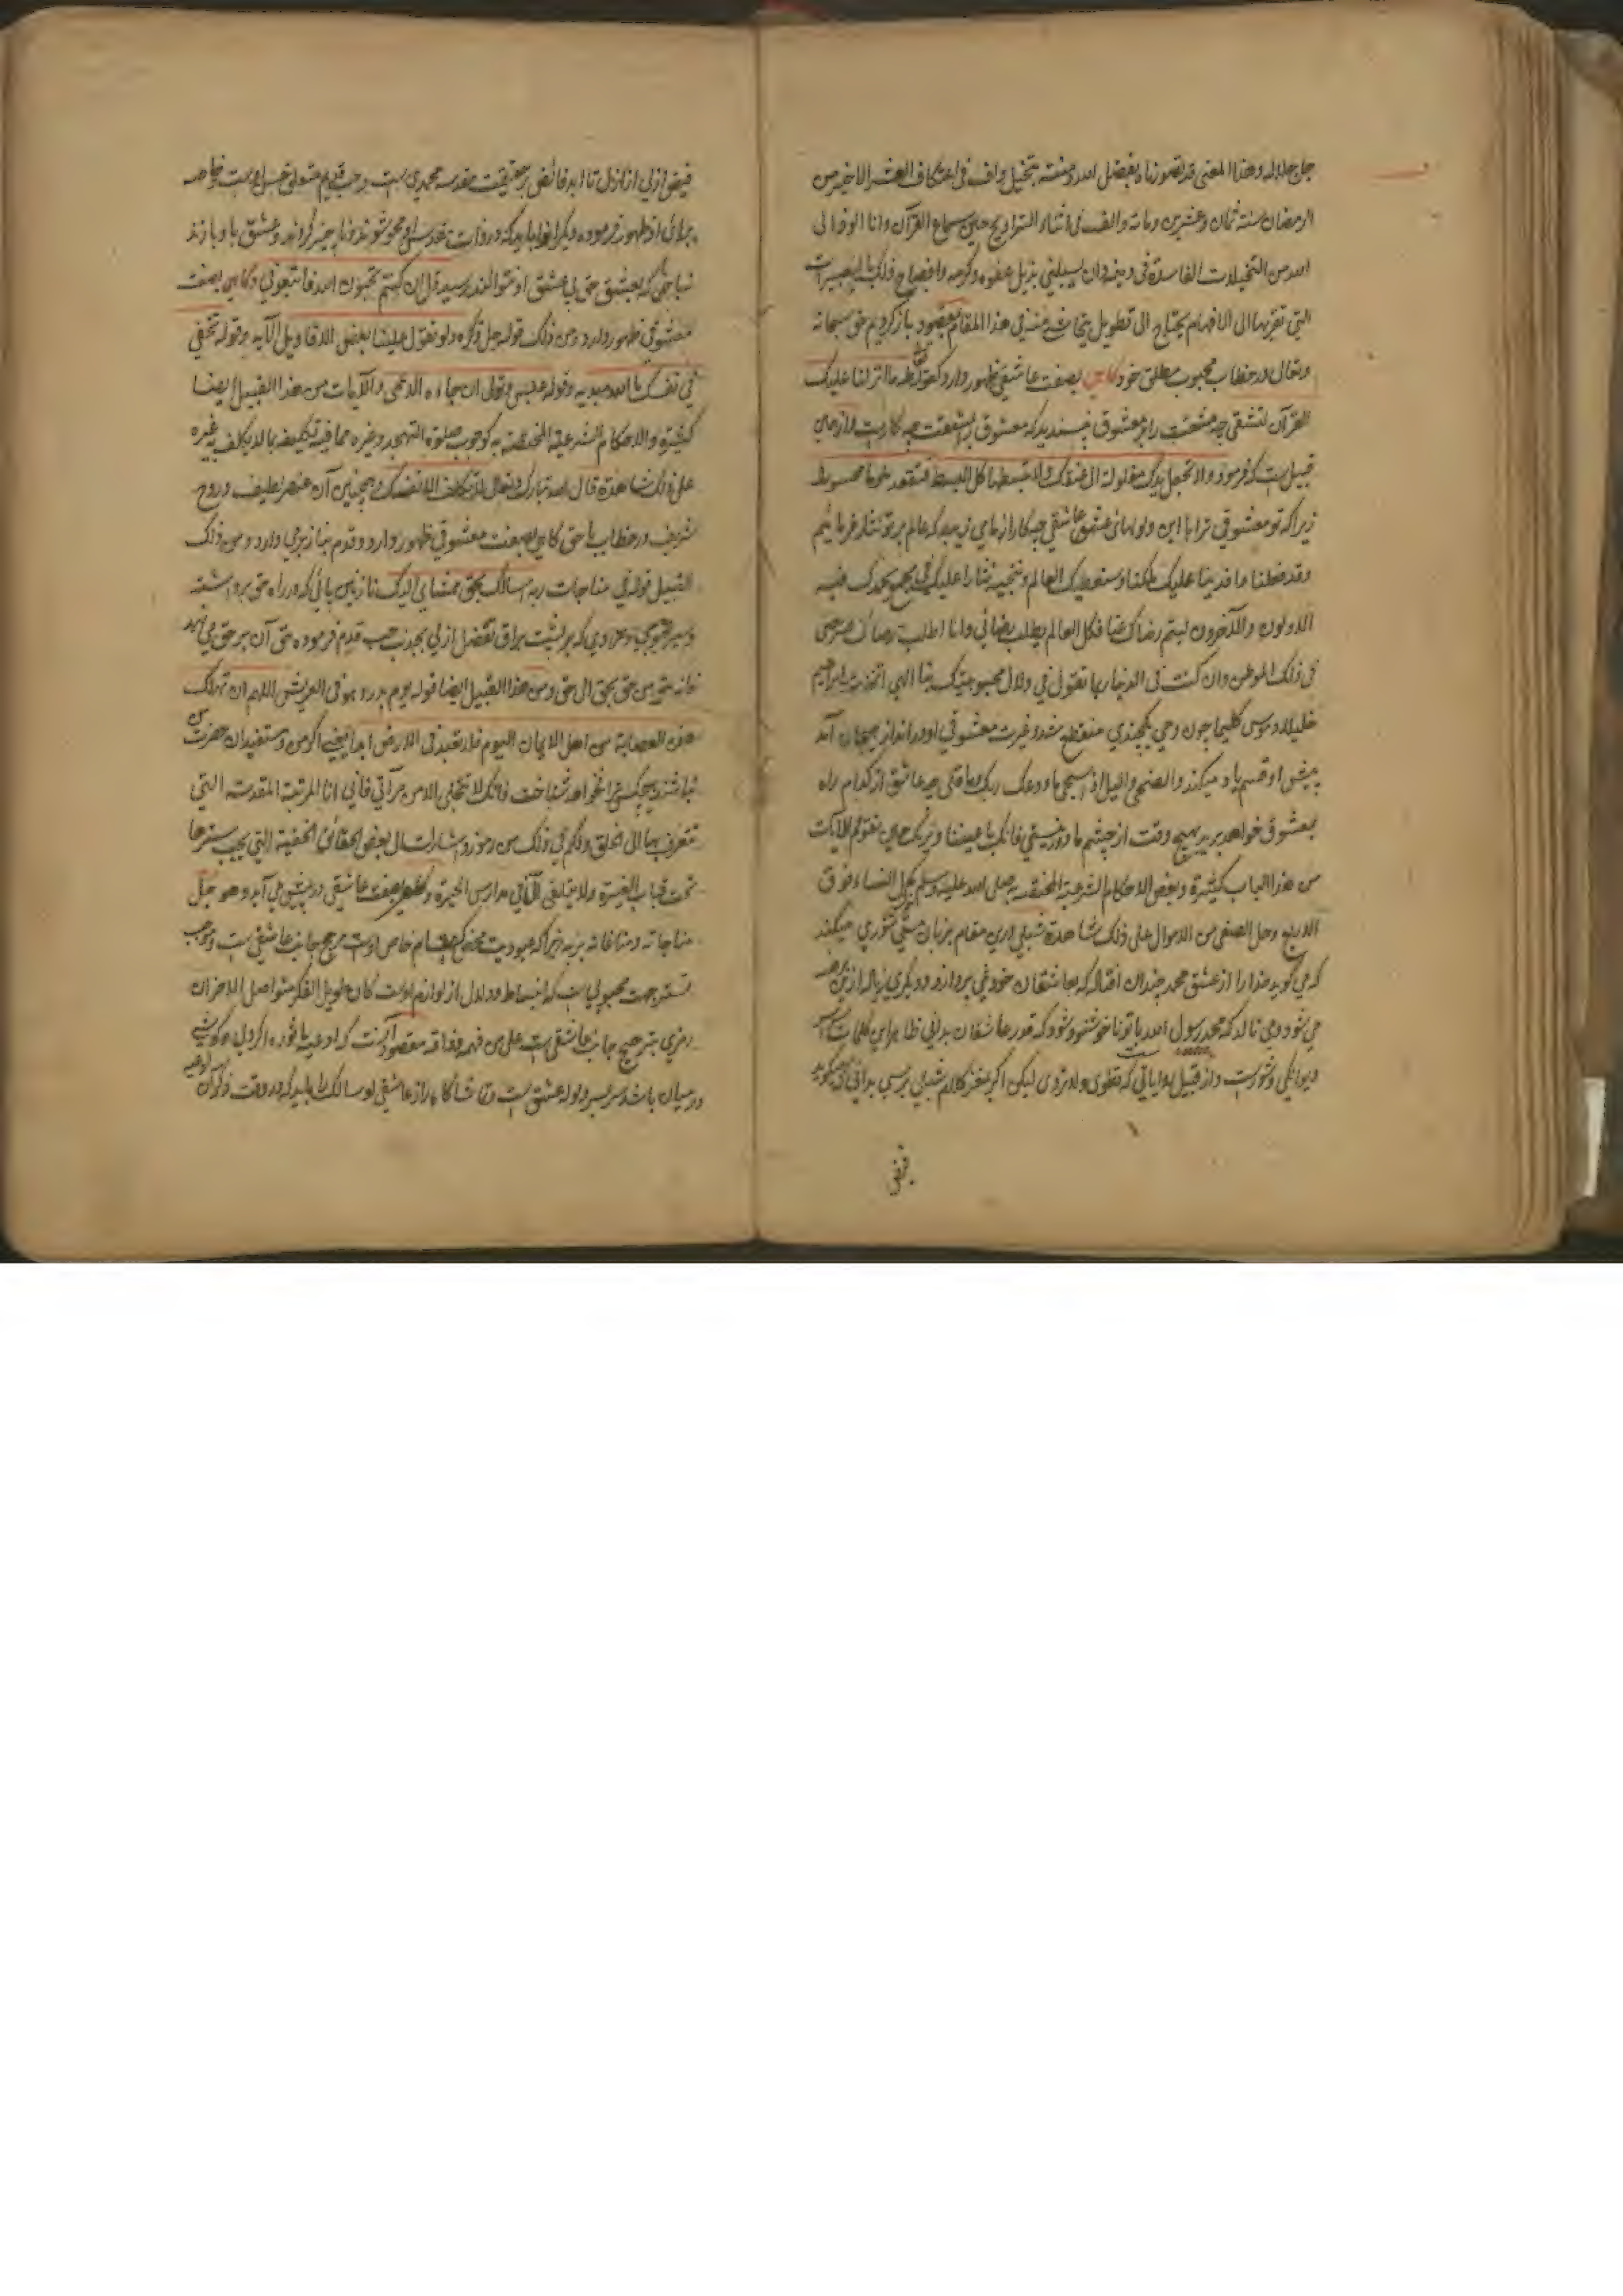 جل جلاله وهذا المعنى قد تصورناه بفضل الله ومنته بتخيل واف في اعتكاف العشر الاخير من
الرمضان سنة ثمان وعشرين ومائة والف في اثناء التراويح حين سماع القرآن وانا الوذ الى
الله من التخيلات الفاسدة في وان بذيل عفوه وكرمه وافصاح ذلك بالتعبيرات
التي تقربها الى الافهام يحتاج الى تطويل في هذا المقام بمقصود باز گرديم حق سبحانه
وتعالى در خطاب محبوب مطلق خود كاهى بصفت عاشقى ظهور دارد كقوله طه ما انزلنا عليك
القرآن لتشقى چه مشقت را بر معشوق نپسنديد كه معشوق را بمشقت چه كارست و ازهمين
قبيل است كه فرمود ولا تجعل يدك مغلولة الى عنقك ولا تبسطها كل البسط فتقعد ملوما محسورا
زيرا كه تو معشوقى ترا با اين عشق عاشقى چه كار از ما مى زيبد كه عالم بر تو نثار فرمائيم
وقد فعلنا ما فدينا عليك ملكنا العالم نثارا عليك في فيه
الاولون والآخرون ليتم رضاك عنا فكل العالم يطلب رضائي وانا اطلب رضاك
في ذلك الموطن وان كنت في الدنيا ربما تقول في دلال محبوبيتك بنا الهي اتخذت ابراهيم
خليلا وموسى كليما چون وحى يكچندى منقطع شد و غيرت معشوقى او در انداز هيجان آمد
پيش او قسم ياد ميكند والضحى والليل اذا سجى ما ودعك ربك وما قلى چه عاشق از كدام راه
بمعشوق خواهد بريد هيچ وقت از چشم ما دور نيستى فانك باعيننا ونريك حين تقوم الآيات
من هذا الباب كثيرة وبعض الاحكام الشرعية المختصة به صلى الله عليه وسلم كحل النساء فوق
الاربع وحل الصفى من الاموال على ذلك شاهدة شبلى درين مقام بزبان مستى شورى ميكند
كه مى گويد خدا را از عشق محمد چندان افتاد كه بعاشقان خود نمى پردازد و ديگرى
مى شود و مى نالد كه محمد رسول الله با تو ناخوشنود شود كه قدر عاشقان بدانى ظاهر اين كلمات
ديوانگى و شورست و از قبيل هذياناتى كه تطوى ولا تروى ليكن اگر بمغز كلام شبلى برسى بدانى كه چه ميگويد
فيض
فيض ازلى از ازل تا ابد فائض بر حقيقت مقدسه محمدى است و حب قديم متعلق است خاصه
براى او ظهور فرموده ديگرانرا بايد كه در ذات مقدس او محو شوند و ناچيز گردند و عشق با او بازند
تا حق كه بعشق حق بى عشق او نتوانند رسيد قل ان كنتم تحبون الله فاتبعوني وكاهى بصفت
معشوقى ظهور دارد ومن ذلك قوله جل ذكره ولو تقول علينا بعض الاقاويل الآيه وقوله تخفي
في نفسك ما الله مبديه وقوله عبس وتولى ان جاءه الاعمى والآيات من هذا القبيل ايضا
كثيرة والاحكام الشرعية المختصة به كوجوب صلوة التهجد وغيره مما فيه تكليفه بما لا يكلف به غيره
على ذلك شاهدة قال الله تبارك وتعالى لا تكلف الا نفسك وهمچنين آن عنصر لطيف و روح
شريف در خطاب با حق كاهى بصفت معشوقى ظهور دارد و قدم بناز مى دارد ومن ذلك
القبيل قوله في مناجات ربه اسألك بحق ممشاي اليك نازنين پائى كه در راه حق برداشته
كه بر پشت براق تفضل ازلى بجذب حب قدم فرموده حق آن بر حق مى نهد
فانه مشى من حق بحق الى حق ومن هذا القبيل ايضا قوله يوم بدر وهو في العريش اللهم ان تهلك
هذه العصابة من اهل الايمان اليوم فلا تعبد في الارض ابدا يعنى اگر من و مستفيدان حضرت من
نباشند هيچكس ترا نخواهد شناخت فانك لا تتجلى الا من مرآتي فاني انا المرتبة المقدسة التي
تتعرف بها الى الخلق وكم في ذلك من رموز واشارات الى بعض الحقائق الخفية التي يجب سترها
تحت قباب الغيرة ولا يتلقى الا في مدارس الحيرة وكاهى بصفت عاشقى در پيش مى آيد وهو جل
مناجاته ومناغاته بربه زيرا كه عبوديت محض كه مقام خاص اوست مرجح جانب عاشقى است وموجب
تستر جهت محبوبى است كه انبساط و دلال از لوازم اوست كان طويل الفكر متواصل الاحزان
رمزى بترجيح جانب عاشقى است على من فهم وذاقه مقصود آنست كه ادعيه ماثوره
درميان باشد سر بسر ولوله عشق است سالك را بايد كه در وقت ذكر آن ادعيه